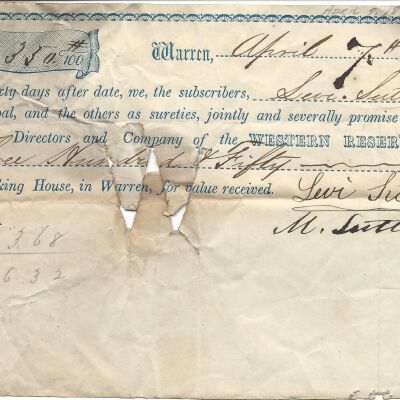 APRIL 9,
350 #/100 Warren, April 7th
xty days after date, we, the subscribers, Levi Sut
pal, and the others as sureties, jointly and severally promise
Directors and Company of the WESTERN RESER
ee Hundred & Fifty
king House, in Warren, for value received.
Levi Su
M. Sutl
3.68
6 3 2